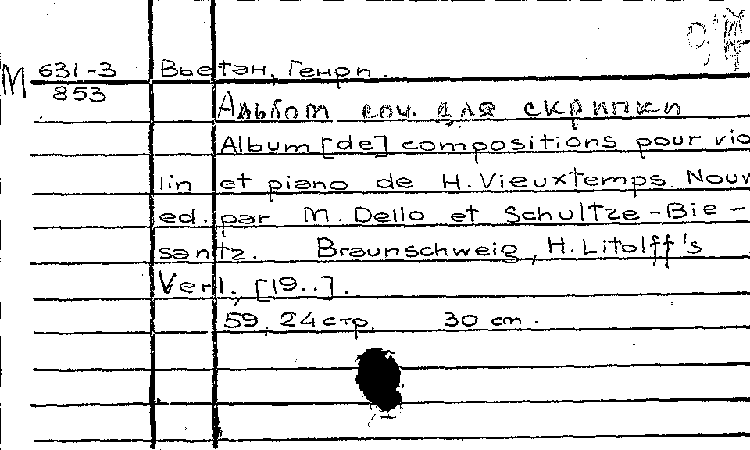 М 631-3 Вьетан, Генри.
853
Альбом соч. для скрипки
Album [de] compositions pour vio
lin et piano de H. Vieuxtemps. Nouv
ed. par M. Dello et Schultze-Bie-
santz. Braunschweig, H. Litolff's
Verl., [19..].
59, 24 стр. 30 cm.